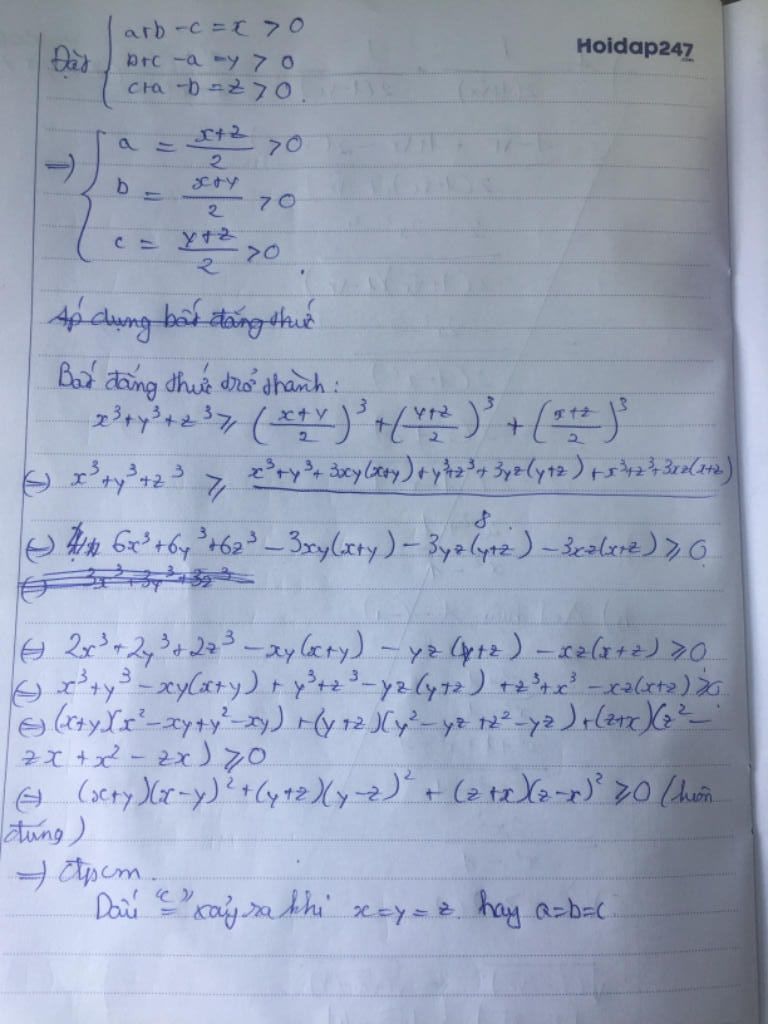 Hoidap247
.com
Đặt { a+b-c = x > 0
b+c-a = y > 0
c+a-b = z > 0.
=> { a = (x+z)/2 > 0
b = (x+y)/2 > 0
c = (y+z)/2 > 0.
Áp dụng bất đẳng thức
Bất đẳng thức trở thành:
x³+y³+z³ ≥ ((x+y)/2)³ + ((y+z)/2)³ + ((x+z)/2)³
(=) x³+y³+z³ ≥ (x³+y³+3xy(x+y)+y³+z³+3yz(y+z)+x³+z³+3xz(x+z))/8
(=) 6x³+6y³+6z³-3xy(x+y)-3yz(y+z)-3xz(x+z) ≥ 0
(=) 3x³+3y³+3z³
(=) 2x³+2y³+2z³-xy(x+y)-yz(y+z)-xz(x+z) ≥ 0
(=) x³+y³-xy(x+y)+y³+z³-yz(y+z)+z³+x³-xz(x+z) ≥ 0
(=) (x+y)(x²-xy+y²-xy)+(y+z)(y²-yz+z²-yz)+(z+x)(z²-
zx+x²-zx) ≥ 0
(=) (x+y)(x-y)²+(y+z)(y-z)²+(z+x)(z-x)² ≥ 0 (luôn
đúng)
=> đpcm.
Dấu "=" xảy ra khi x=y=z hay a=b=c